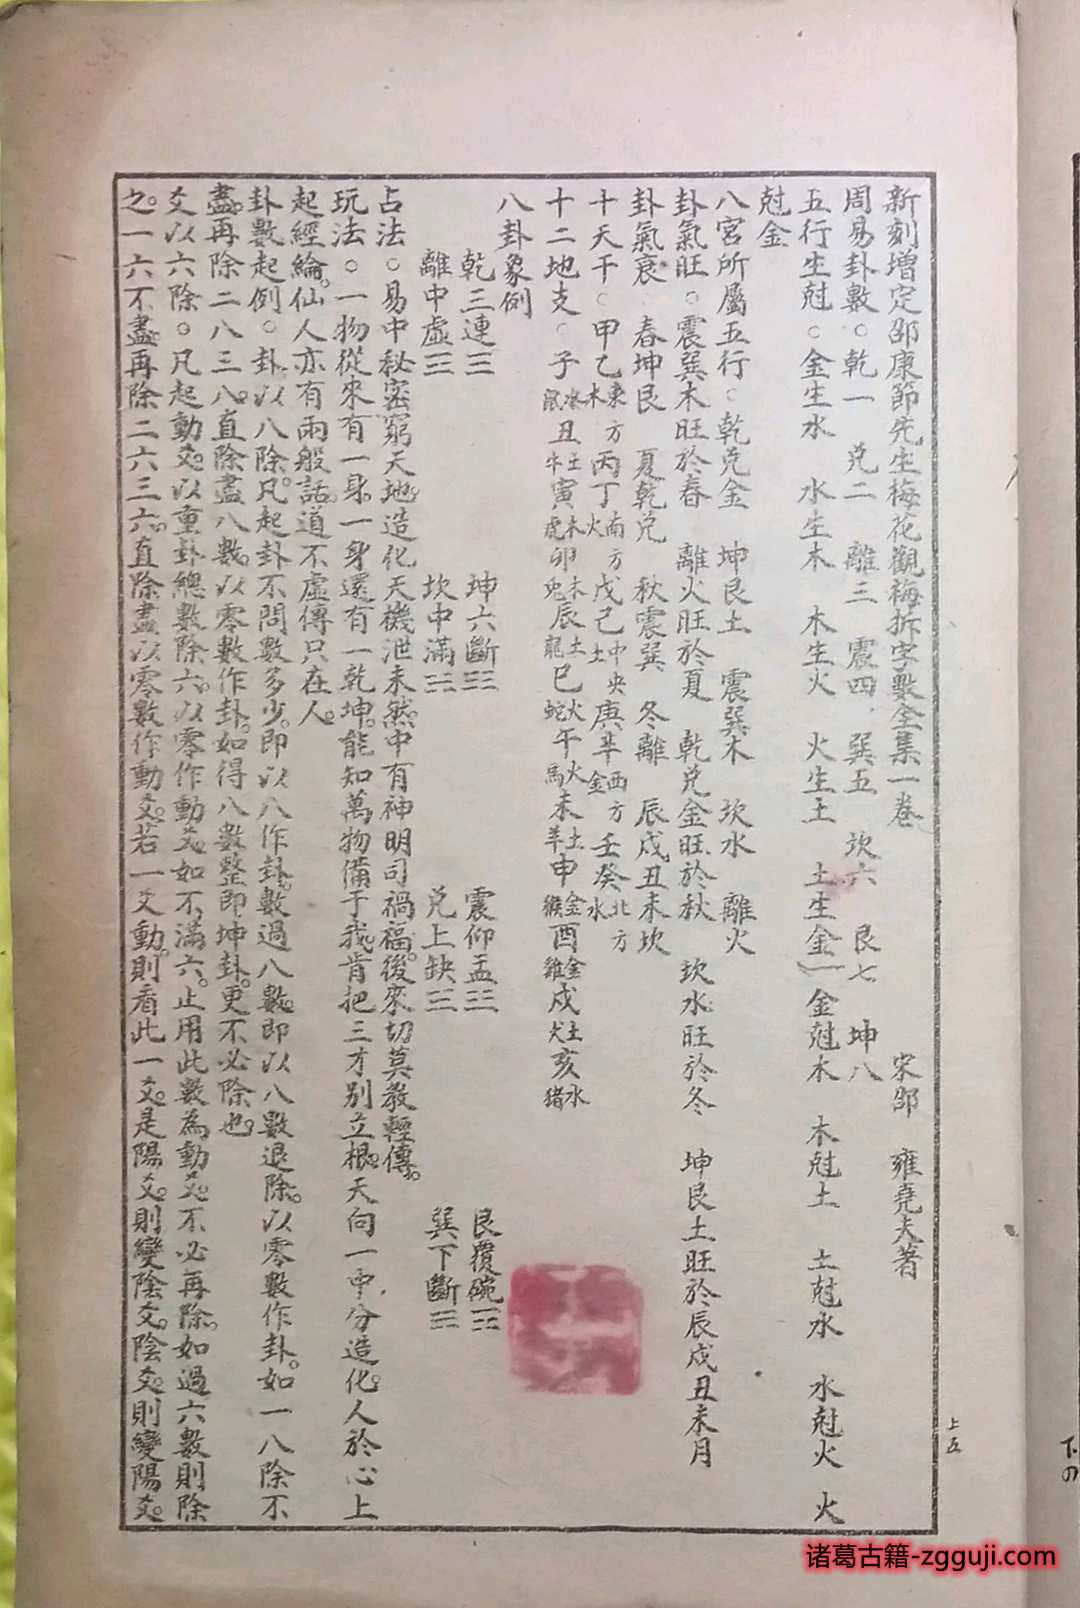 新刻增定邵康節先生梅花觀梅拆字數全集一卷　宋邵　雍堯夫著
周易卦數。乾一　兌二　離三　震四　巽五　坎六　艮七　坤八
五行生尅。金生水　水生木　木生火　火生土　土生金　金尅木　木尅土　土尅水　水尅火　火
尅金
八宮所屬五行。乾兌金　坤艮土　震巽木　坎水　離火
卦氣旺。震巽木旺於春　離火旺於夏　乾兌金旺於秋　坎水旺於冬　坤艮土旺於辰戌丑未月
卦氣衰　春坤艮　夏乾兌　秋震巽　冬離　辰戌丑未坎
十天干。甲乙東方木丙丁南方火戊己中央土庚辛西方金壬癸北方水
十二地支。子水鼠丑土牛寅木虎卯木兔辰土龍巳火蛇午火馬未土羊申金猴酉金雞戌土犬亥水猪
八卦象例
乾三連☰　坤六斷☷　震仰盂☳　艮覆碗☶
離中虛☲　坎中滿☵　兌上缺☱　巽下斷☴
占法。易中秘密窮天地。造化天機泄未然。中有神明司禍福。後來切莫教輕傳。
玩法。一物從來有一身。一身還有一乾坤。能知萬物備于我。肯把三才別立根。天向一中分造化。人於心上
起經綸。仙人亦有兩般話。道不虛傳只在人。
卦數起例。卦以八除。凡起卦不問數多少。即以八作卦。數過八數。即以八數退除。以零數作卦。如一八除不
盡。再除二八三八。直除盡八數。以零數作卦。如得八數整即坤卦。更不必除也。
爻以六除。凡起動爻。以重卦總數除六。以零作動爻。如不滿六。止用此數為動爻。不必再除。如過六數則除
之。一六不盡。再除二六三六。直除盡以零數作動爻。若一爻動。則看此一爻。是陽爻。則變陰爻。陰爻。則變陽爻。
上五
下の
诸葛古籍-zgguji.com